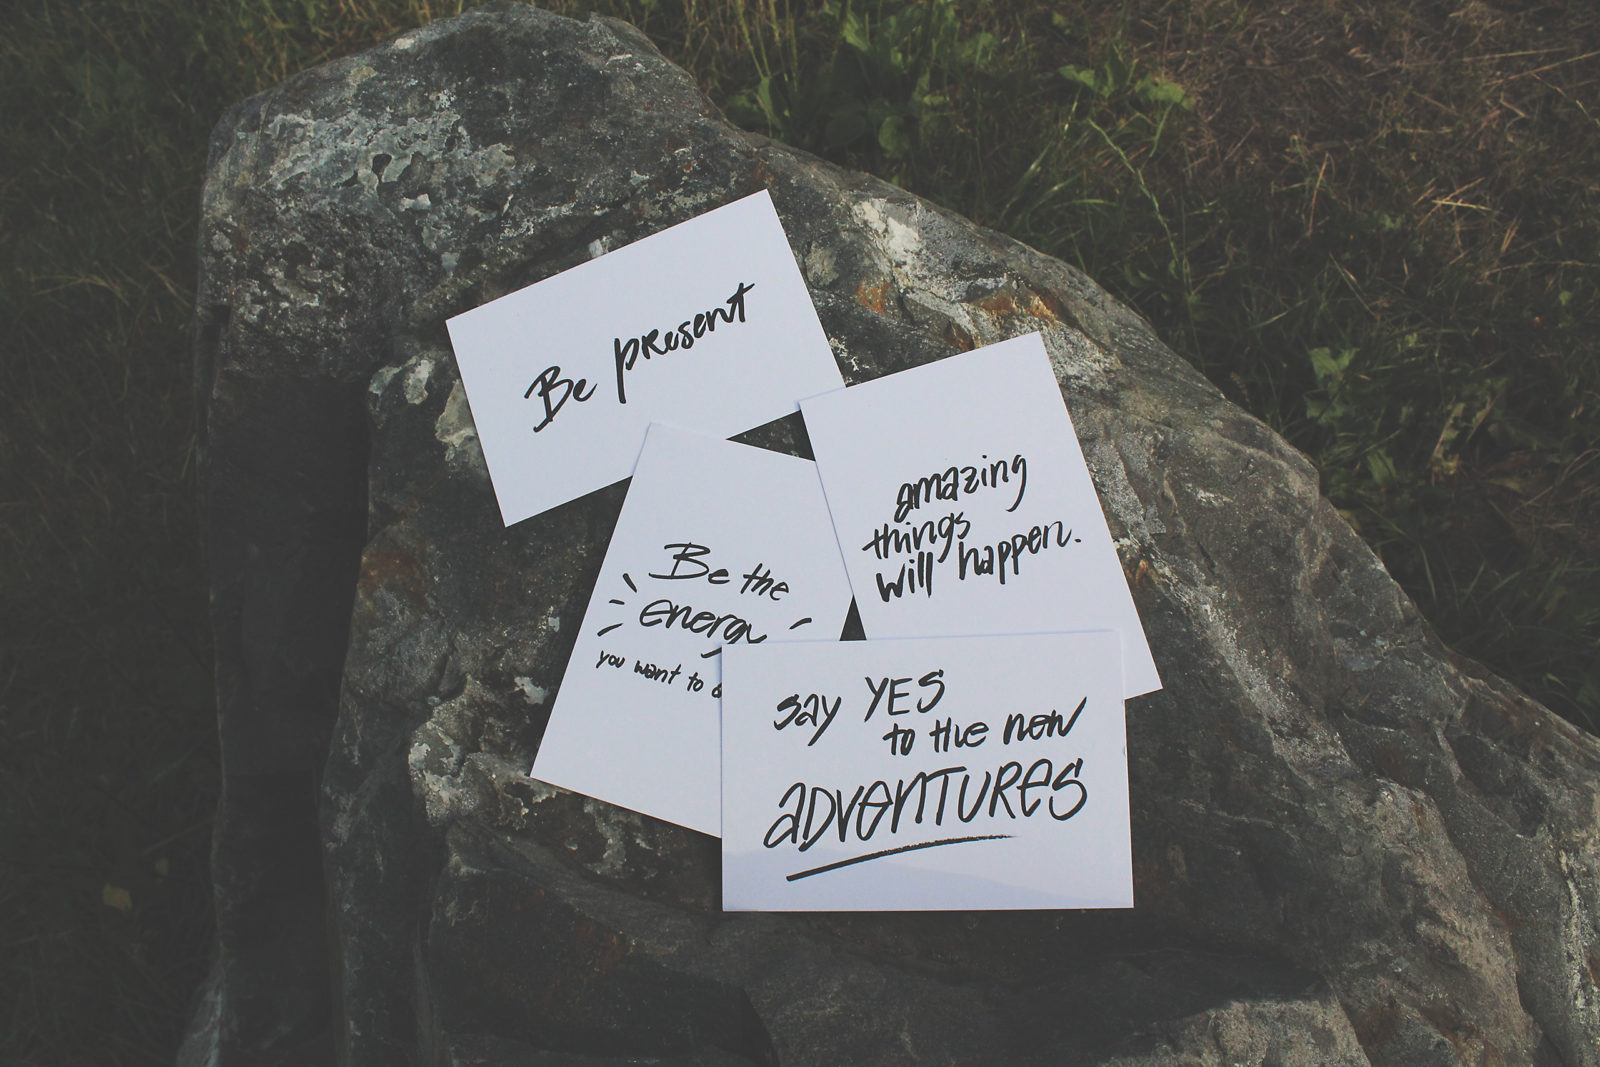 Be present
amazing
things
will happen.
Be the
energy
you want to
say YES
to the new
ADVENTURES